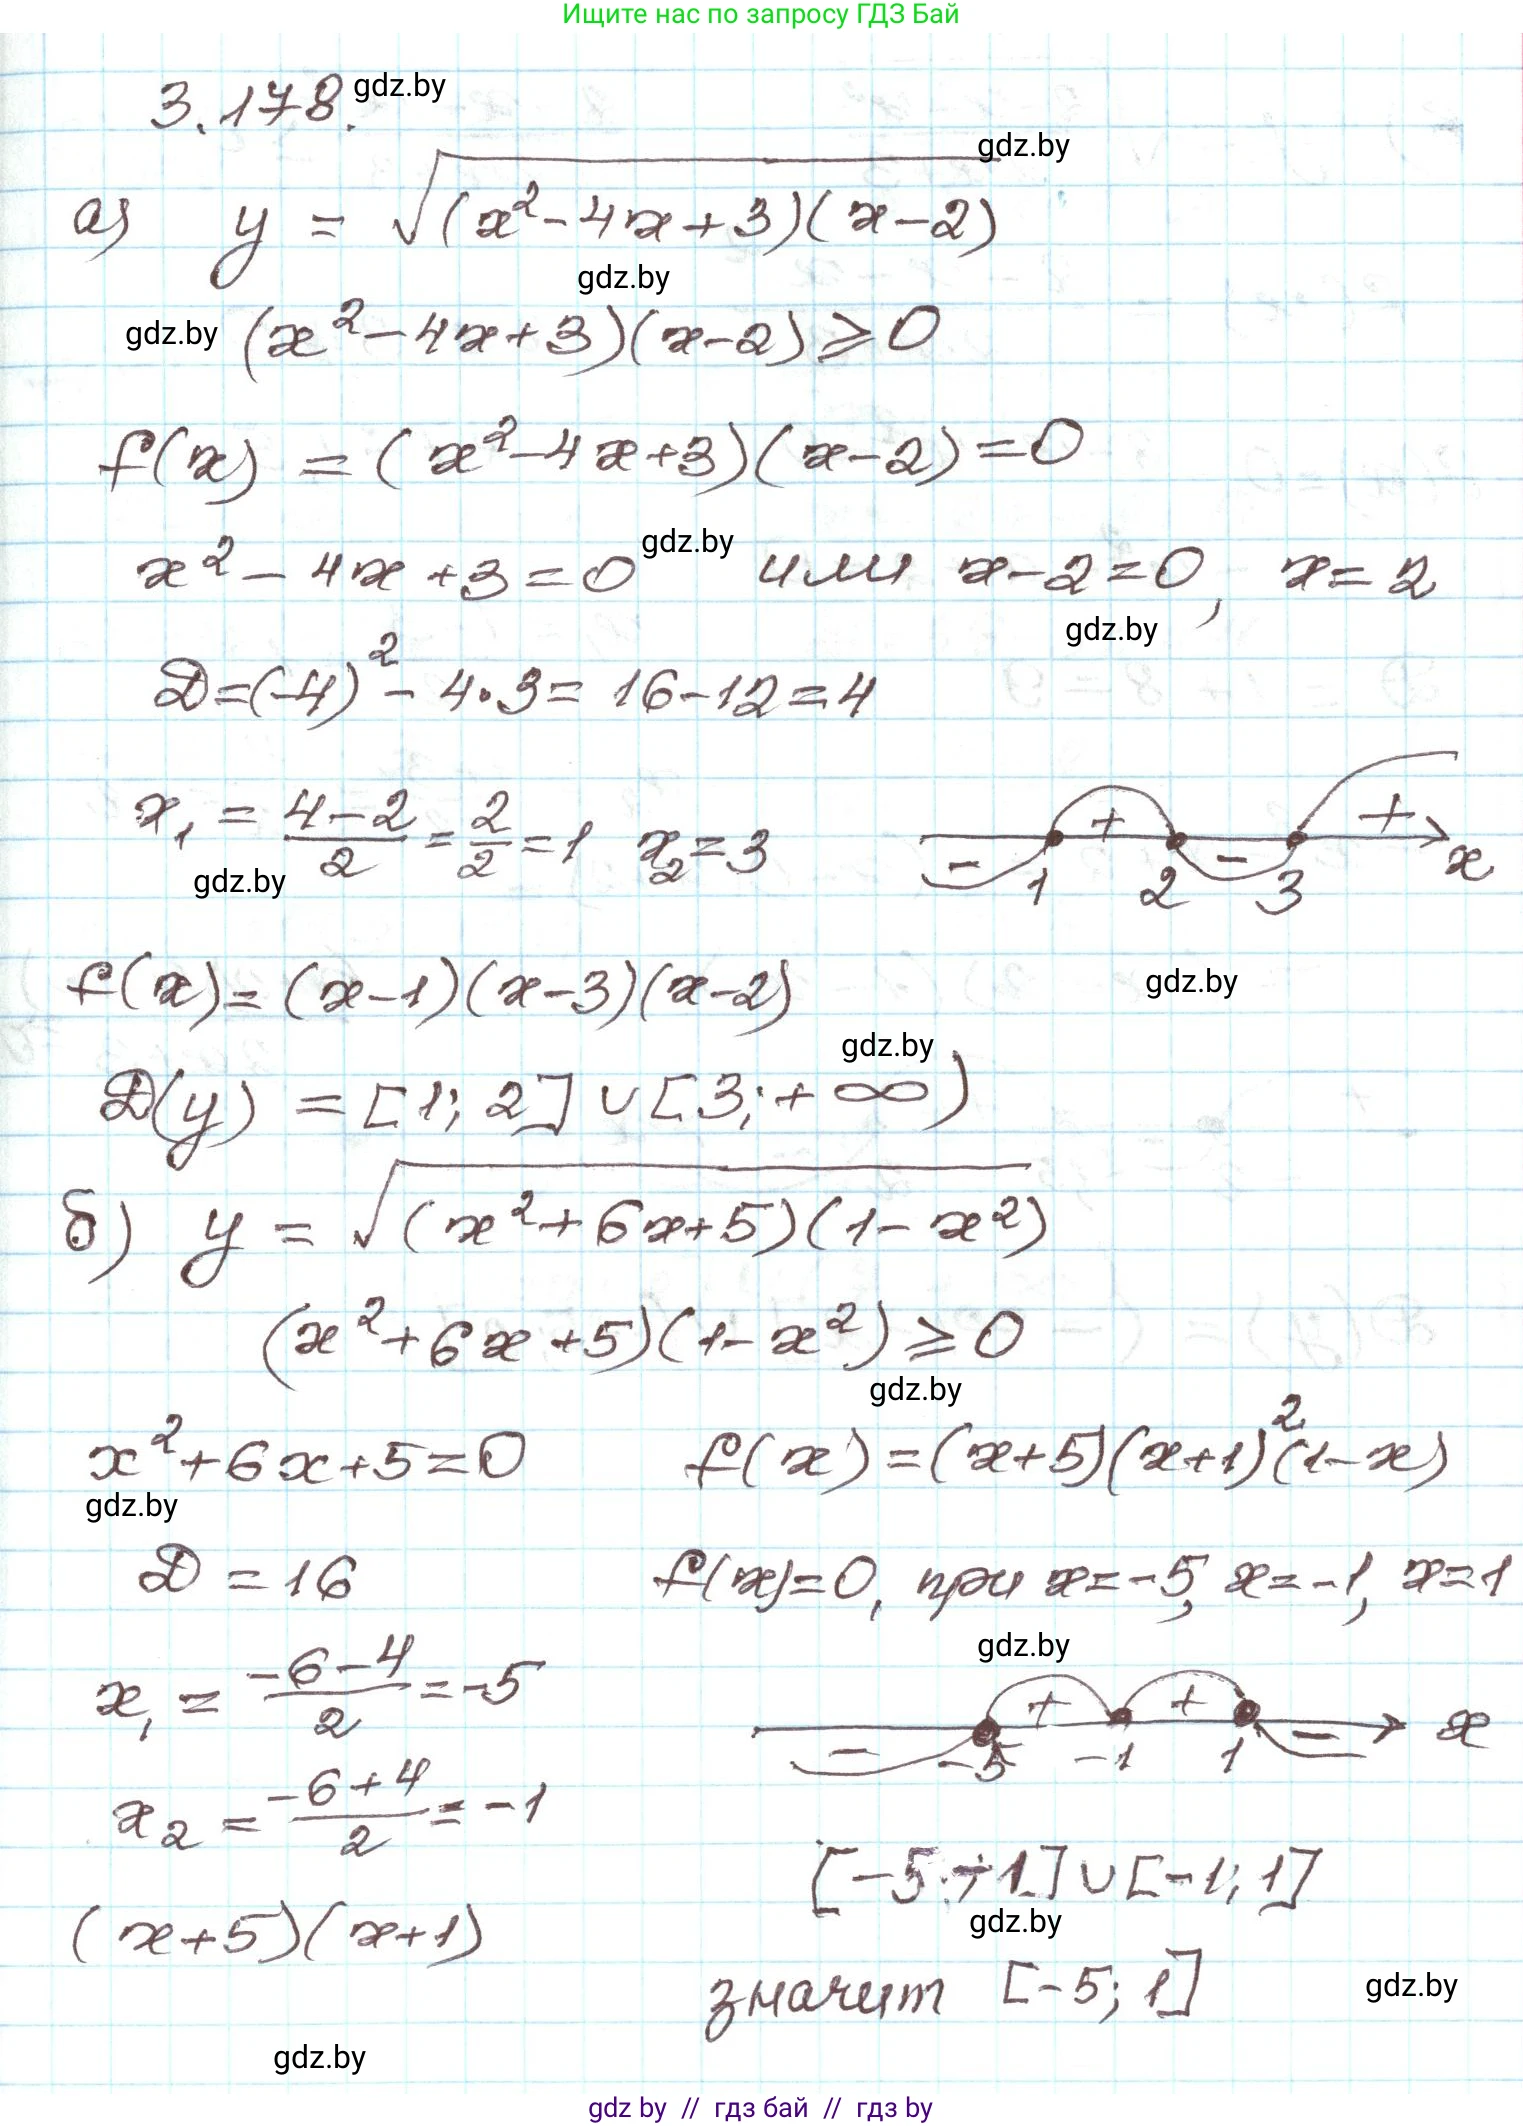 Ищите нас по запросу ГДЗ Бай
3.178. gdz.by
gdz.by
а) y = √((x² - 4x + 3)(x - 2))
gdz.by
gdz.by (x² - 4x + 3)(x - 2) ⩾ 0
f(x) = (x² - 4x + 3)(x - 2) = 0
x² - 4x + 3 = 0 gdz.by или x - 2 = 0, x = 2
gdz.by
D = (-4)² - 4·3 = 16 - 12 = 4
x₁ = (4 - 2)/2 = 2/2 = 1 x₂ = 3
- + - + x
1 2 3
gdz.by
f(x) = (x - 1)(x - 3)(x - 2)
gdz.by
gdz.by
D(y) = [1; 2] ∪ [3; +∞)
б) y = √((x² + 6x + 5)(1 - x²))
(x² + 6x + 5)(1 - x²) ⩾ 0
gdz.by
x² + 6x + 5 = 0 f(x) = (x + 5)(x + 1)²(1 - x)
gdz.by
D = 16 f(x) = 0, при x = -5, x = -1, x = 1
gdz.by
x₁ = (-6 - 4)/2 = -5
- + + - x
-5 -1 1
x₂ = (-6 + 4)/2 = -1
[-5; -1] ∪ [-1; 1]
gdz.by
(x + 5)(x + 1)
значит [-5; 1] gdz.by
gdz.by
gdz by // гдз бай // гдз by